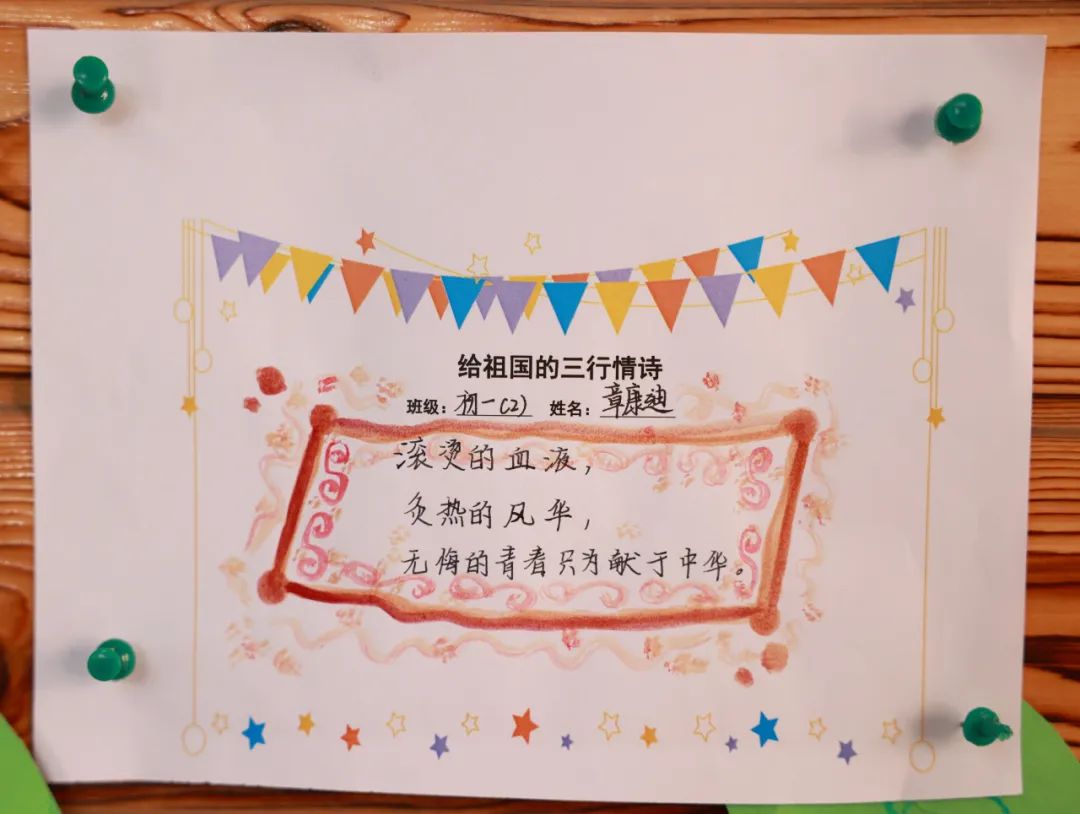 给祖国的三行情诗
班级：初一(2) 姓名：章康迪
滚烫的血液，
炙热的风华，
无悔的青春只为献于中华。